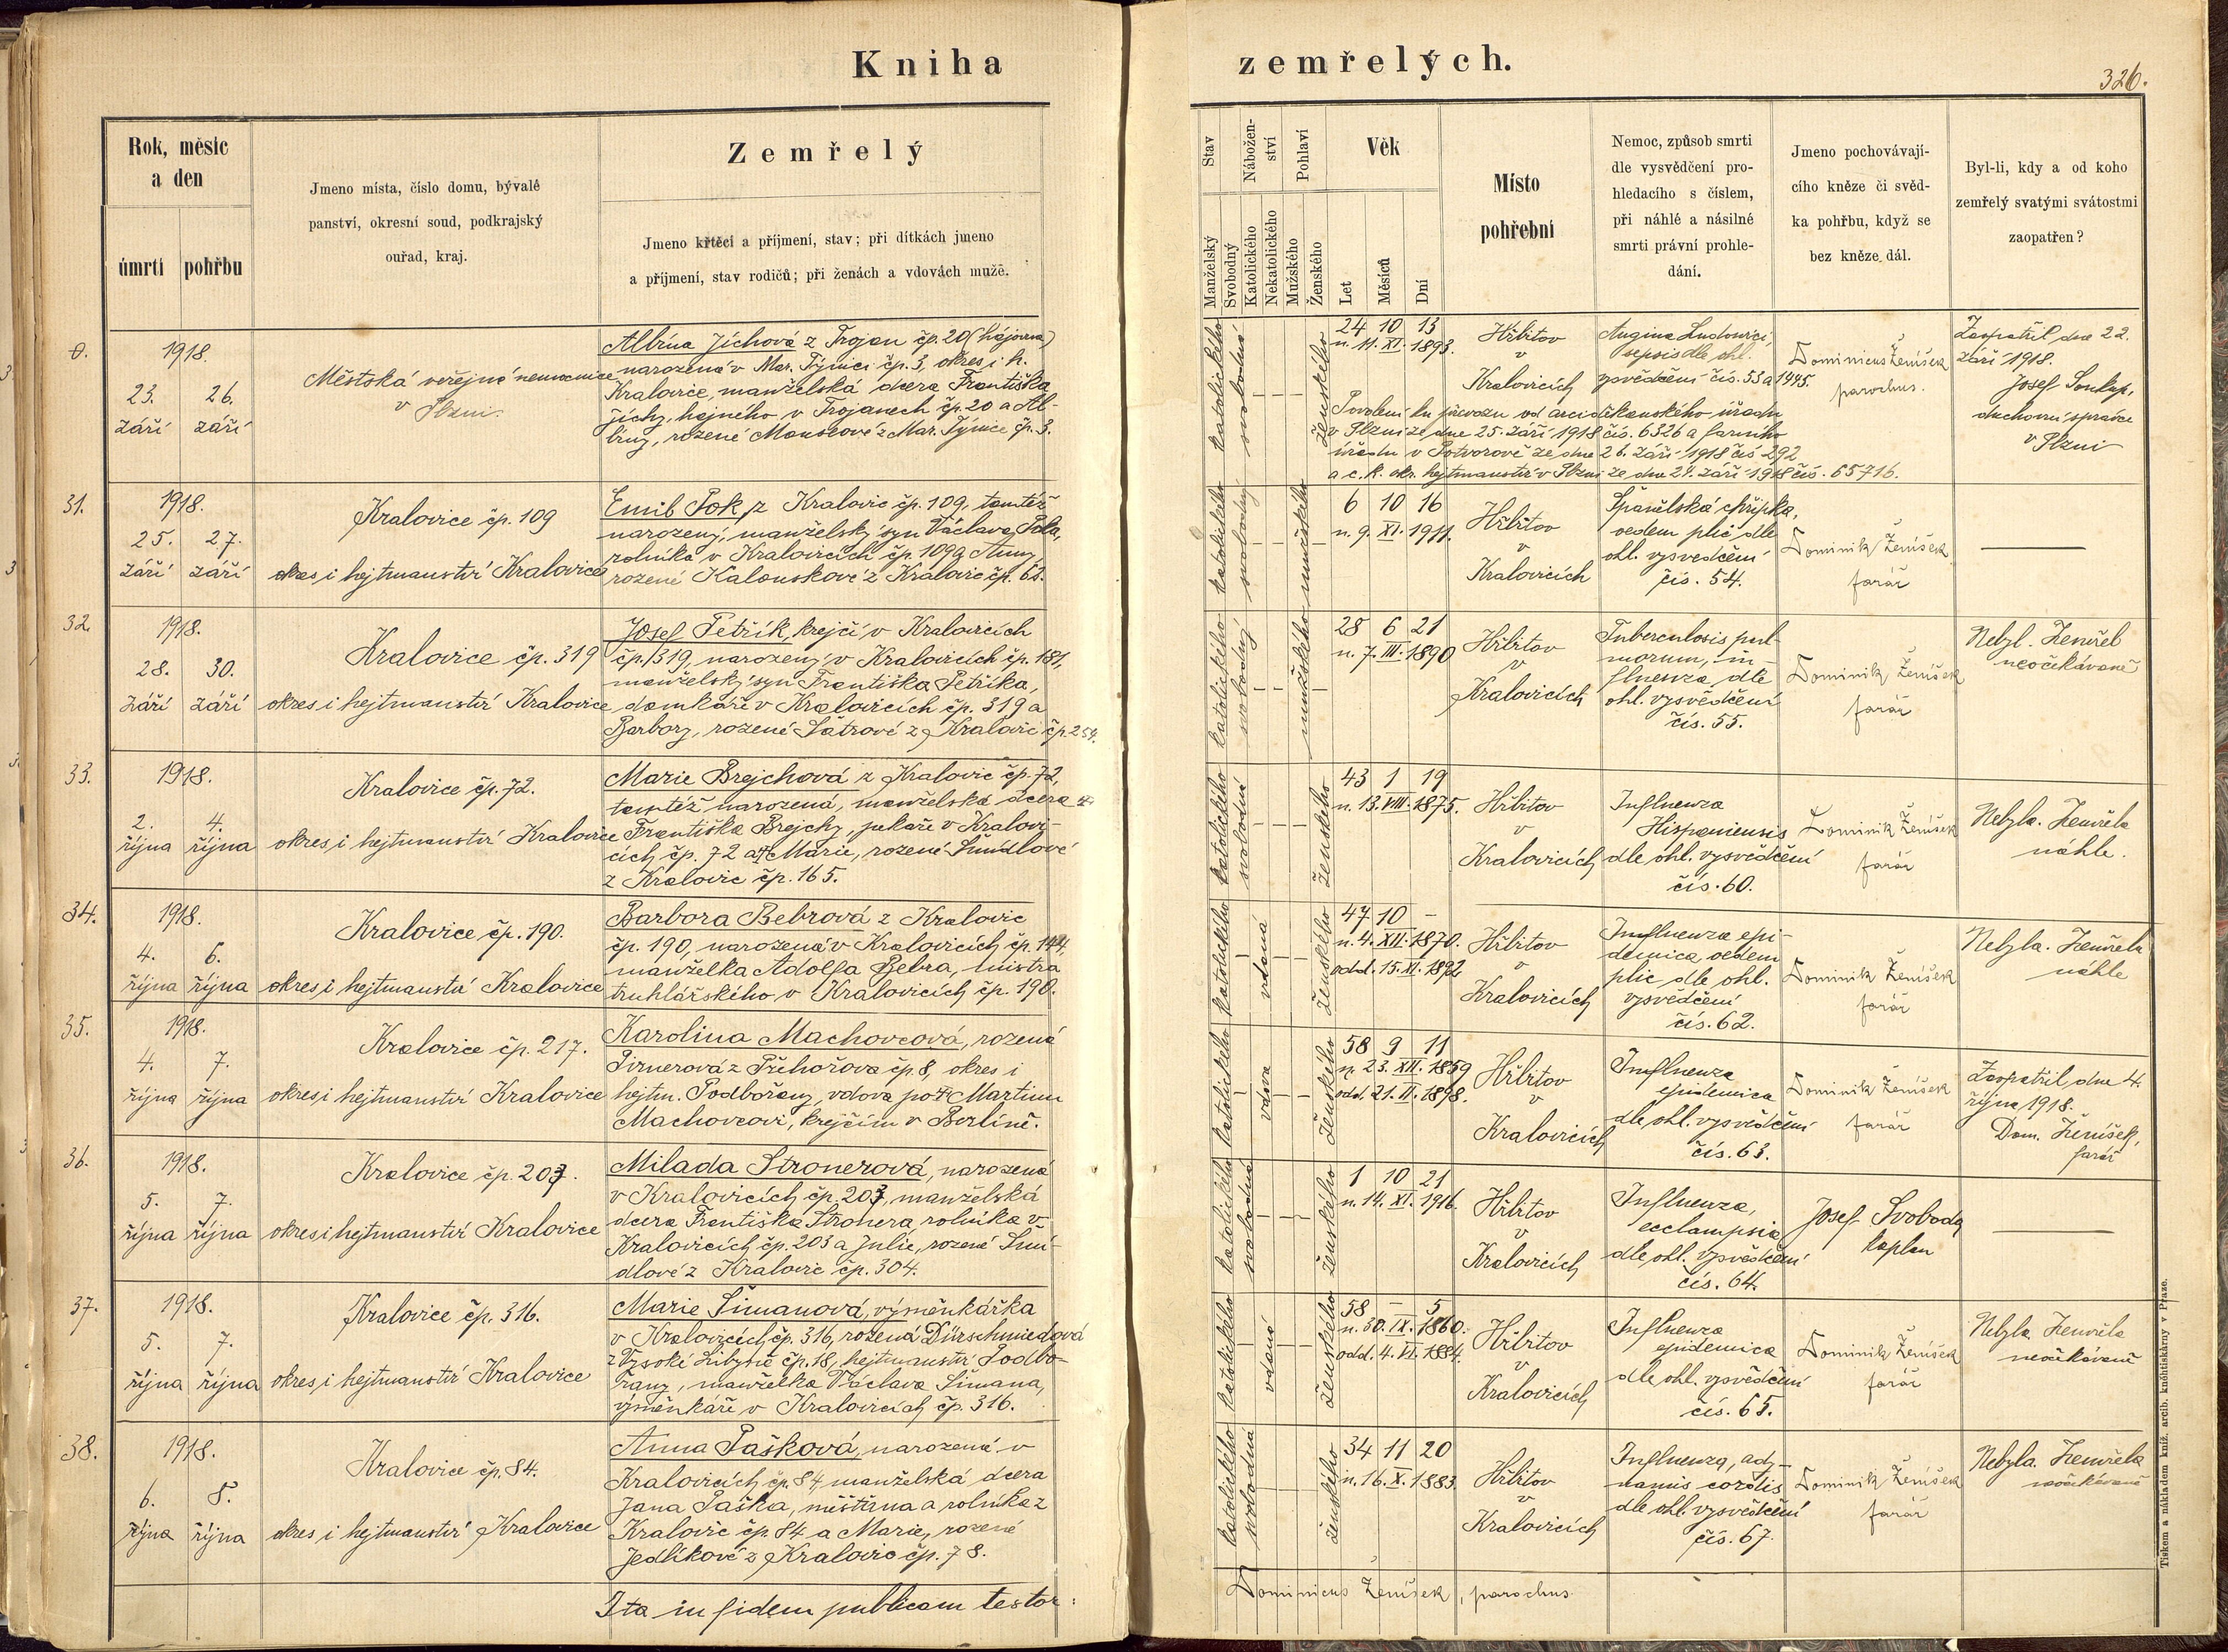 Kniha zemřelých.
326.
Rok, měsíc
a den
úmrtí
pohřbu
Jmeno místa, číslo domu, bývalé
panství, okresní soud, podkrajský
ouřad, kraj.
Zemřelý
Jmeno křtěcí a příjmení, stav; při dítkách jmeno
a příjmení, stav rodičů; při ženách a vdovách mužě.
Stav
Manželský
Svobodný
Nábožen-
ství
Katolického
Nekatolického
Pohlaví
Mužského
Ženského
Věk
Let
Měsíců
Dní
Místo
pohřební
Nemoc, způsob smrti
dle vysvědčení pro-
hledacího s číslem,
při náhlé a násilné
smrti právní prohle-
dání.
Jmeno pochovávají-
cího kněze či svěd-
ka pohřbu, když se
bez kněze dál.
Byl-li, kdy a od koho
zemřelý svatými svátostmi
zaopatřen?
0.
1918.
23. 26.
září září
Městská veřejná nemocnice
v Plzni
Albína Jíchová z Trojan čp. 20 (hájovna)
narozená v Mar. Týnici čp. 3, okres i h.
Kralovice, manželská dcera Františka
Jíchy, hajného v Trojanech čp. 20 a Al-
bíny, rozené z Mar. Týnice čp. 3.
katolického
svobodná
ženského
24 10 13
n. 11. XI. 1893.
Hřbitov
v
Kralovicích
Angina Ludowici,
sepsis dle ohl.
vysvědčení čís. 53 a 1445.
Dominicus Ženíšek
parochus.
Zaopatřil dne 22.
září 1918.
Josef Soukup,
duchovní správce
v Plzni
Povolení ku převozu od arciděkanského úřadu
v Plzni ze dne 25. září 1918 čís. 6326 a farního
úřadu v Potvorově ze dne 26. září 1918 čís 292
a c. k. okr. hejtmanství v Plzni ze dne 24. září 1918 čís. 65716.
31.
1918.
25. 27.
září září
Kralovice čp. 109
okres i hejtmanství Kralovice
Emil Pok z Kralovic čp. 109, tamtéž
narozený, manželský syn Václava Poka,
rolníka v Kralovicích čp. 109 a Anny,
rozené Kalouskové z Kralovic čp. 62.
katolického
svobodný
mužského
6 10 16
n. 9. XI. 1911.
Hřbitov
v
Kralovicích
Španělská chřipka,
oedem plic dle
ohl. vysvědčení
čís. 54.
Dominik Ženíšek
farář
32.
1918.
28. 30.
září září
Kralovice čp. 319
okres i hejtmanství Kralovice
Josef Petřík, krejčí v Kralovicích
čp. 319, narozený v Kralovicích čp. 181,
manželský syn Františka Petříka,
domkáře v Kralovicích čp. 319 a
Barbory, rozené Šátrové z Kralovic čp. 254.
katolického
svobodný
mužského
28 6 21
n. 7. III. 1890
Hřbitov
v
Kralovicích
Tuberculosis pul-
monum, in-
fluenza, dle
ohl. vysvědčení
čís. 55.
Dominik Ženíšek
farář
Nebyl. Zemřel
neočekávaně
33.
1918.
2. 4.
října října
Kralovice čp. 72.
okres i hejtmanství Kralovice
Marie Brejchová z Kralovic čp. 72,
tamtéž narozená, manželská dcera
Františka Brejchy, pekaře v Kralovi-
cích čp. 72 a Marie, rozené Šmídlové
z Kralovic čp. 165.
katolického
svobodná
ženského
43 1 19
n. 13. VIII. 1875.
Hřbitov
v
Kralovicích
Influenza
Hispaniensis
dle ohl. vysvědčení
čís. 60.
Dominik Ženíšek
farář
Nebyla. Zemřela
náhle.
34.
1918.
4. 6.
října října
Kralovice čp. 190.
okres i hejtmanství Kralovice
Barbora Bebrová z Kralovic
čp. 190, narozená v Kralovicích čp. 144,
manželka Adolfa Bebra, mistra
truhlářského v Kralovicích čp. 190.
katolického
vdaná
ženského
47 10 -
n. 4. XII. 1870.
odd. 15. XI. 1892
Hřbitov
v
Kralovicích
Influenza epi-
demica oedem
plic dle ohl.
vysvědčení
čís. 62.
Dominik Ženíšek
farář
Nebyla. Zemřela
náhle
35.
1918.
4. 7.
října října
Kralovice čp. 217.
okres i hejtmanství Kralovice
Karolina Machovcová, rozená
Pirnerová z Přehořova čp. 8, okres i
hejtm. Podbořany, vdova po Martinu
Machovcovi, krejčím v Berlíně.
katolického
vdova
ženského
58 9 11
n. 23. XII. 1859
odd. 21. II. 1898.
Hřbitov
v
Kralovicích
Influenza
epidemica
dle ohl. vysvědčení
čís. 63.
Dominik Ženíšek
farář
Zaopatřil dne 4.
října 1918.
Dom. Ženíšek,
farář
36.
1918.
5. 7.
října října
Kralovice čp. 203.
okres i hejtmanství Kralovice
Milada Stronerová, narozená
v Kralovicích čp. 203, manželská
dcera Františka Stronera, rolníka v
Kralovicích čp. 203 a Julie, rozené Šmí-
dlové z Kralovic čp. 304.
katolického
svobodná
ženského
1 10 21
n. 14. XI. 1916.
Hřbitov
v
Kralovicích
Influenza,
ecclampsia
dle ohl. vysvědčení
čís. 64.
Josef Svoboda
kaplan
37.
1918.
5. 7.
října října
Kralovice čp. 316.
okres i hejtmanství Kralovice
Marie Šimanová, výměnkářka
v Kralovicích čp. 316, rozená Dürschmiedová
z Vysoké Libyně čp. 18, hejtmanství Podbo-
řany, manželka Václava Šimana,
výměnkáře v Kralovicích čp. 316.
katolického
vdaná
ženského
58 - 5
n. 30. IX. 1860.
odd. 4. VI. 1884.
Hřbitov
v
Kralovicích
Influenza
epidemica
dle ohl. vysvědčení
čís. 65.
Dominik Ženíšek
farář
Nebyla Zemřela
neočekávaně
38.
1918.
6. 8.
října října
Kralovice čp. 84.
okres i hejtmanství Kralovice
Anna Pašková, narozená v
Kralovicích čp. 84, manželská dcera
Jana Paška, měšťana a rolníka z
Kralovic čp. 84 a Marie, rozené
Jedlíkové z Kralovic čp. 78.
katolického
svobodná
ženského
34 11 20
n. 16. X. 1883.
Hřbitov
v
Kralovicích
Influenza, ady-
namis cordis
dle ohl. vysvědčení
čís. 67.
Dominik Ženíšek
farář
Nebyla. Zemřela
neočekávaně
Ita in fidem publicam testor:
Dominicus Ženíšek, parochus.
Tiskem a nákladem kníž. arcib. kněhtiskárny v Praze.